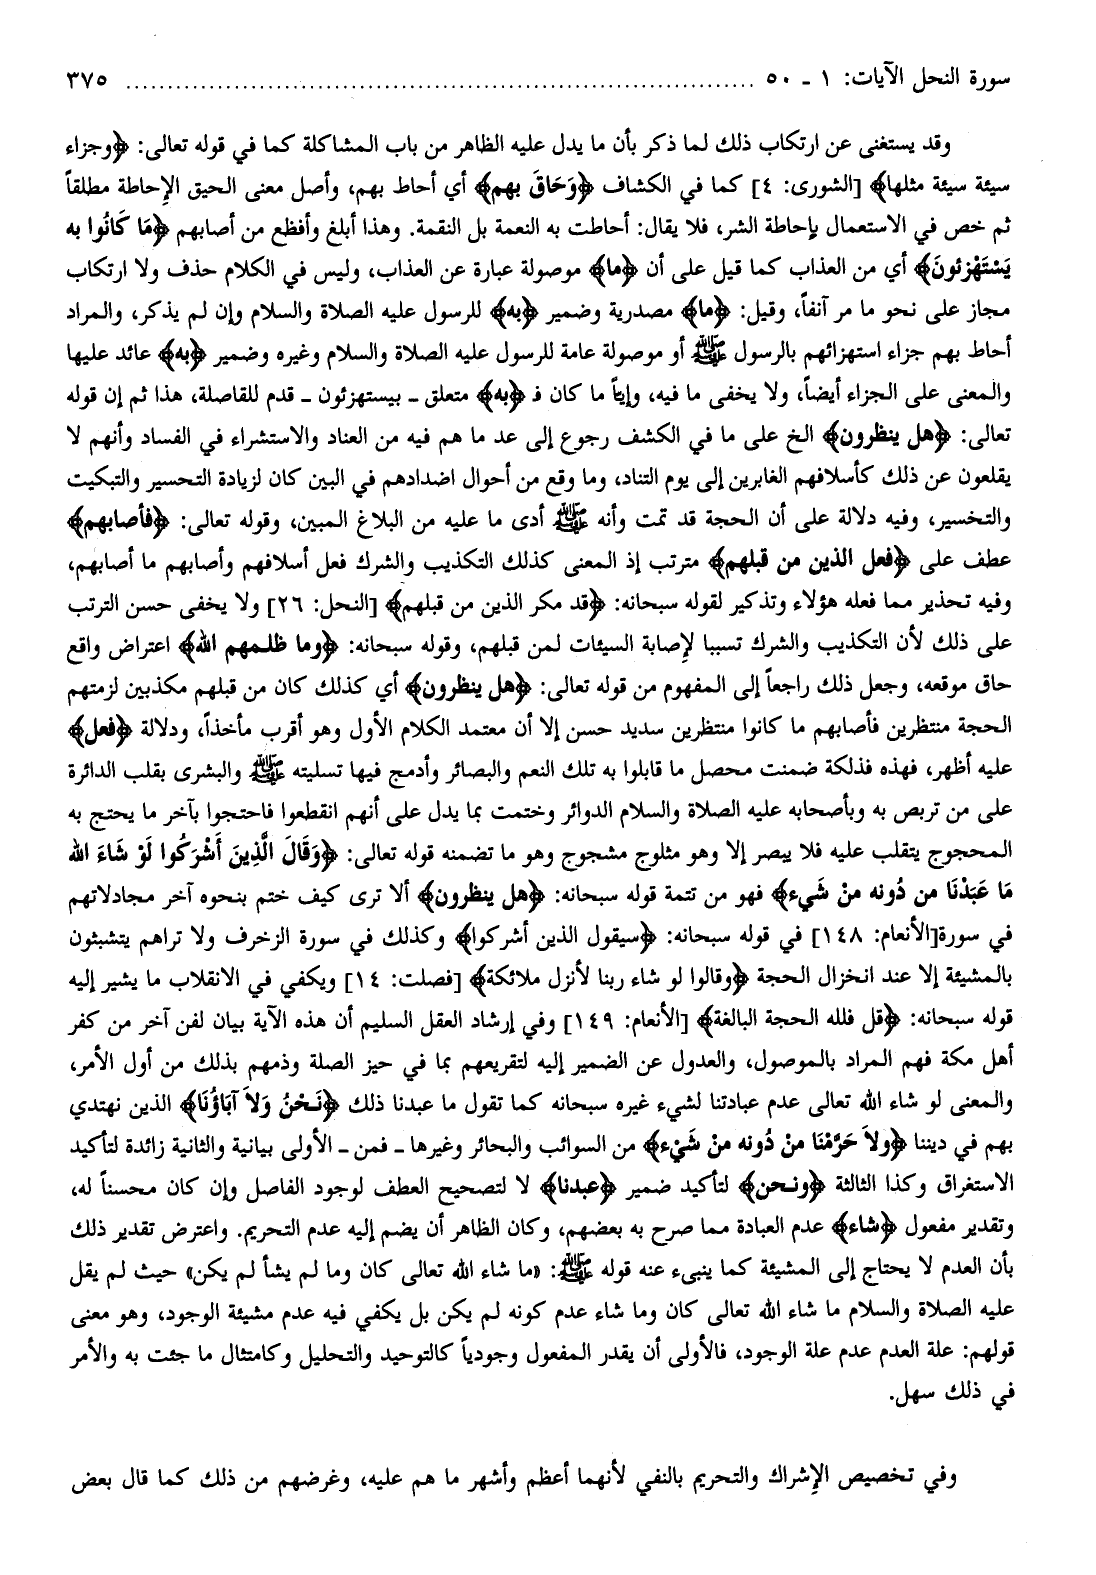 سورة النحل الآيات: ١ ـ ٥٠ ........................................................................ ٣٧٥
وقد يستغنى عن ارتكاب ذلك لما ذكر بأن ما يدل عليه الظاهر من باب المشاكلة كما في قوله تعالى: ﴿وجزاء
سيئة سيئة مثلها﴾ [الشورى: ٤] كما في الكشاف ﴿وَحَاقَ بهم﴾ أي أحاط بهم، وأصل معنى الحيق الإِحاطة مطلقاً
ثم خص في الاستعمال بإحاطة الشر، فلا يقال: أحاطت به النعمة بل النقمة. وهذا أبلغ وأفظع من أصابهم ﴿مَا كَانُوا به
يَسْتَهْزئونَ﴾ أي من العذاب كما قيل على أن ﴿ما﴾ موصولة عبارة عن العذاب، وليس في الكلام حذف ولا ارتكاب
مجاز على نحو ما مر آنفاً، وقيل: ﴿ما﴾ مصدرية وضمير ﴿به﴾ للرسول عليه الصلاة والسلام وإن لم يذكر، والمراد
أحاط بهم جزاء استهزائهم بالرسول ﷺ أو موصولة عامة للرسول عليه الصلاة والسلام وغيره وضمير ﴿به﴾ عائد عليها
والمعنى على الجزاء أيضاً، ولا يخفى ما فيه، وإيتاً ما كان فـ ﴿به﴾ متعلق ـ بيستهزئون ـ قدم للفاصلة، هذا ثم إن قوله
تعالى: ﴿هل ينظرون﴾ الخ على ما في الكشف رجوع إلى عد ما هم فيه من العناد والاستشراء في الفساد وأنهم لا
يقلعون عن ذلك كأسلافهم الغابرين إلى يوم التناد، وما وقع من أحوال اضدادهم في البين كان لزيادة التحسير والتبكيت
والتخسير، وفيه دلالة على أن الحجة قد تمت وأنه ﷺ أدى ما عليه من البلاغ المبين، وقوله تعالى: ﴿فأصابهم﴾
عطف على ﴿فعل الذين من قبلهم﴾ مترتب إذ المعنى كذلك التكذيب والشرك فعل أسلافهم وأصابهم ما أصابهم،
وفيه تحذير مما فعله هؤلاء وتذكير لقوله سبحانه: ﴿قد مكر الذين من قبلهم﴾ [النحل: ٢٦] ولا يخفى حسن الترتب
على ذلك لأن التكذيب والشرك تسببا لإِصابة السيئات لمن قبلهم، وقوله سبحانه: ﴿وما ظلمهم الله﴾ اعتراض واقع
حاق موقعه، وجعل ذلك راجعاً إلى المفهوم من قوله تعالى: ﴿هل ينظرون﴾ أي كذلك كان من قبلهم مكذبين لزمتهم
الحجة منتظرين فأصابهم ما كانوا منتظرين سديد حسن إلا أن معتمد الكلام الأول وهو أقرب مأخذاً، ودلالة ﴿فعل﴾
عليه أظهر، فهذه فذلكة ضمنت محصل ما قابلوا به تلك النعم والبصائر وأدمج فيها تسليته ﷺ والبشرى بقلب الدائرة
على من تربص به وبأصحابه عليه الصلاة والسلام الدوائر وختمت بما يدل على أنهم انقطعوا فاحتجوا بآخر ما يحتج به
المحجوج يتقلب عليه فلا يبصر إلا وهو مثلوج مشجوج وهو ما تضمنه قوله تعالى: ﴿وَقَالَ الَّذِينَ أَشْرَكُوا لَوْ شَاءَ الله
مَا عَبَدْنَا من دُونه منْ شَيء﴾ فهو من تتمة قوله سبحانه: ﴿هل ينظرون﴾ ألا ترى كيف ختم بنحوه آخر مجادلاتهم
في سورة[الأنعام: ١٤٨] في قوله سبحانه: ﴿سيقول الذين أشركوا﴾ وكذلك في سورة الزخرف ولا تراهم يتشبثون
بالمشيئة إلا عند انخزال الحجة ﴿وقالوا لو شاء ربنا لأنزل ملائكة﴾ [فصلت: ١٤] ويكفي في الانقلاب ما يشير إليه
قوله سبحانه: ﴿قل فلله الحجة البالغة﴾ [الأنعام: ١٤٩] وفي إرشاد العقل السليم أن هذه الآية بيان لفن آخر من كفر
أهل مكة فهم المراد بالموصول، والعدول عن الضمير إليه لتقريعهم بما في حيز الصلة وذمهم بذلك من أول الأمر،
والمعنى لو شاء الله تعالى عدم عبادتنا لشيء غيره سبحانه كما تقول ما عبدنا ذلك ﴿نَحْنُ وَلاَ آبَاؤُنَا﴾ الذين نهتدي
بهم في ديننا ﴿ولاَ حَرَّمْنَا منْ دُونه منْ شَيْء﴾ من السوائب والبحائر وغيرها ـ فمن ـ الأولى بيانية والثانية زائدة لتأكيد
الاستغراق وكذا الثالثة ﴿ونحن﴾ لتأكيد ضمير ﴿عبدنا﴾ لا لتصحيح العطف لوجود الفاصل وإن كان محسناً له،
وتقدير مفعول ﴿شاء﴾ عدم العبادة مما صرح به بعضهم، وكان الظاهر أن يضم إليه عدم التحريم. واعترض تقدير ذلك
بأن العدم لا يحتاج إلى المشيئة كما ينبىء عنه قوله ﷺ: «ما شاء الله تعالى كان وما لم يشأ لم يكن» حيث لم يقل
عليه الصلاة والسلام ما شاء الله تعالى كان وما شاء عدم كونه لم يكن بل يكفي فيه عدم مشيئة الوجود، وهو معنى
قولهم: علة العدم عدم علة الوجود، فالأولى أن يقدر المفعول وجودياً كالتوحيد والتحليل وكامتثال ما جئت به والأمر
في ذلك سهل.
وفي تخصيص الإِشراك والتحريم بالنفي لأنهما أعظم وأشهر ما هم عليه، وغرضهم من ذلك كما قال بعض